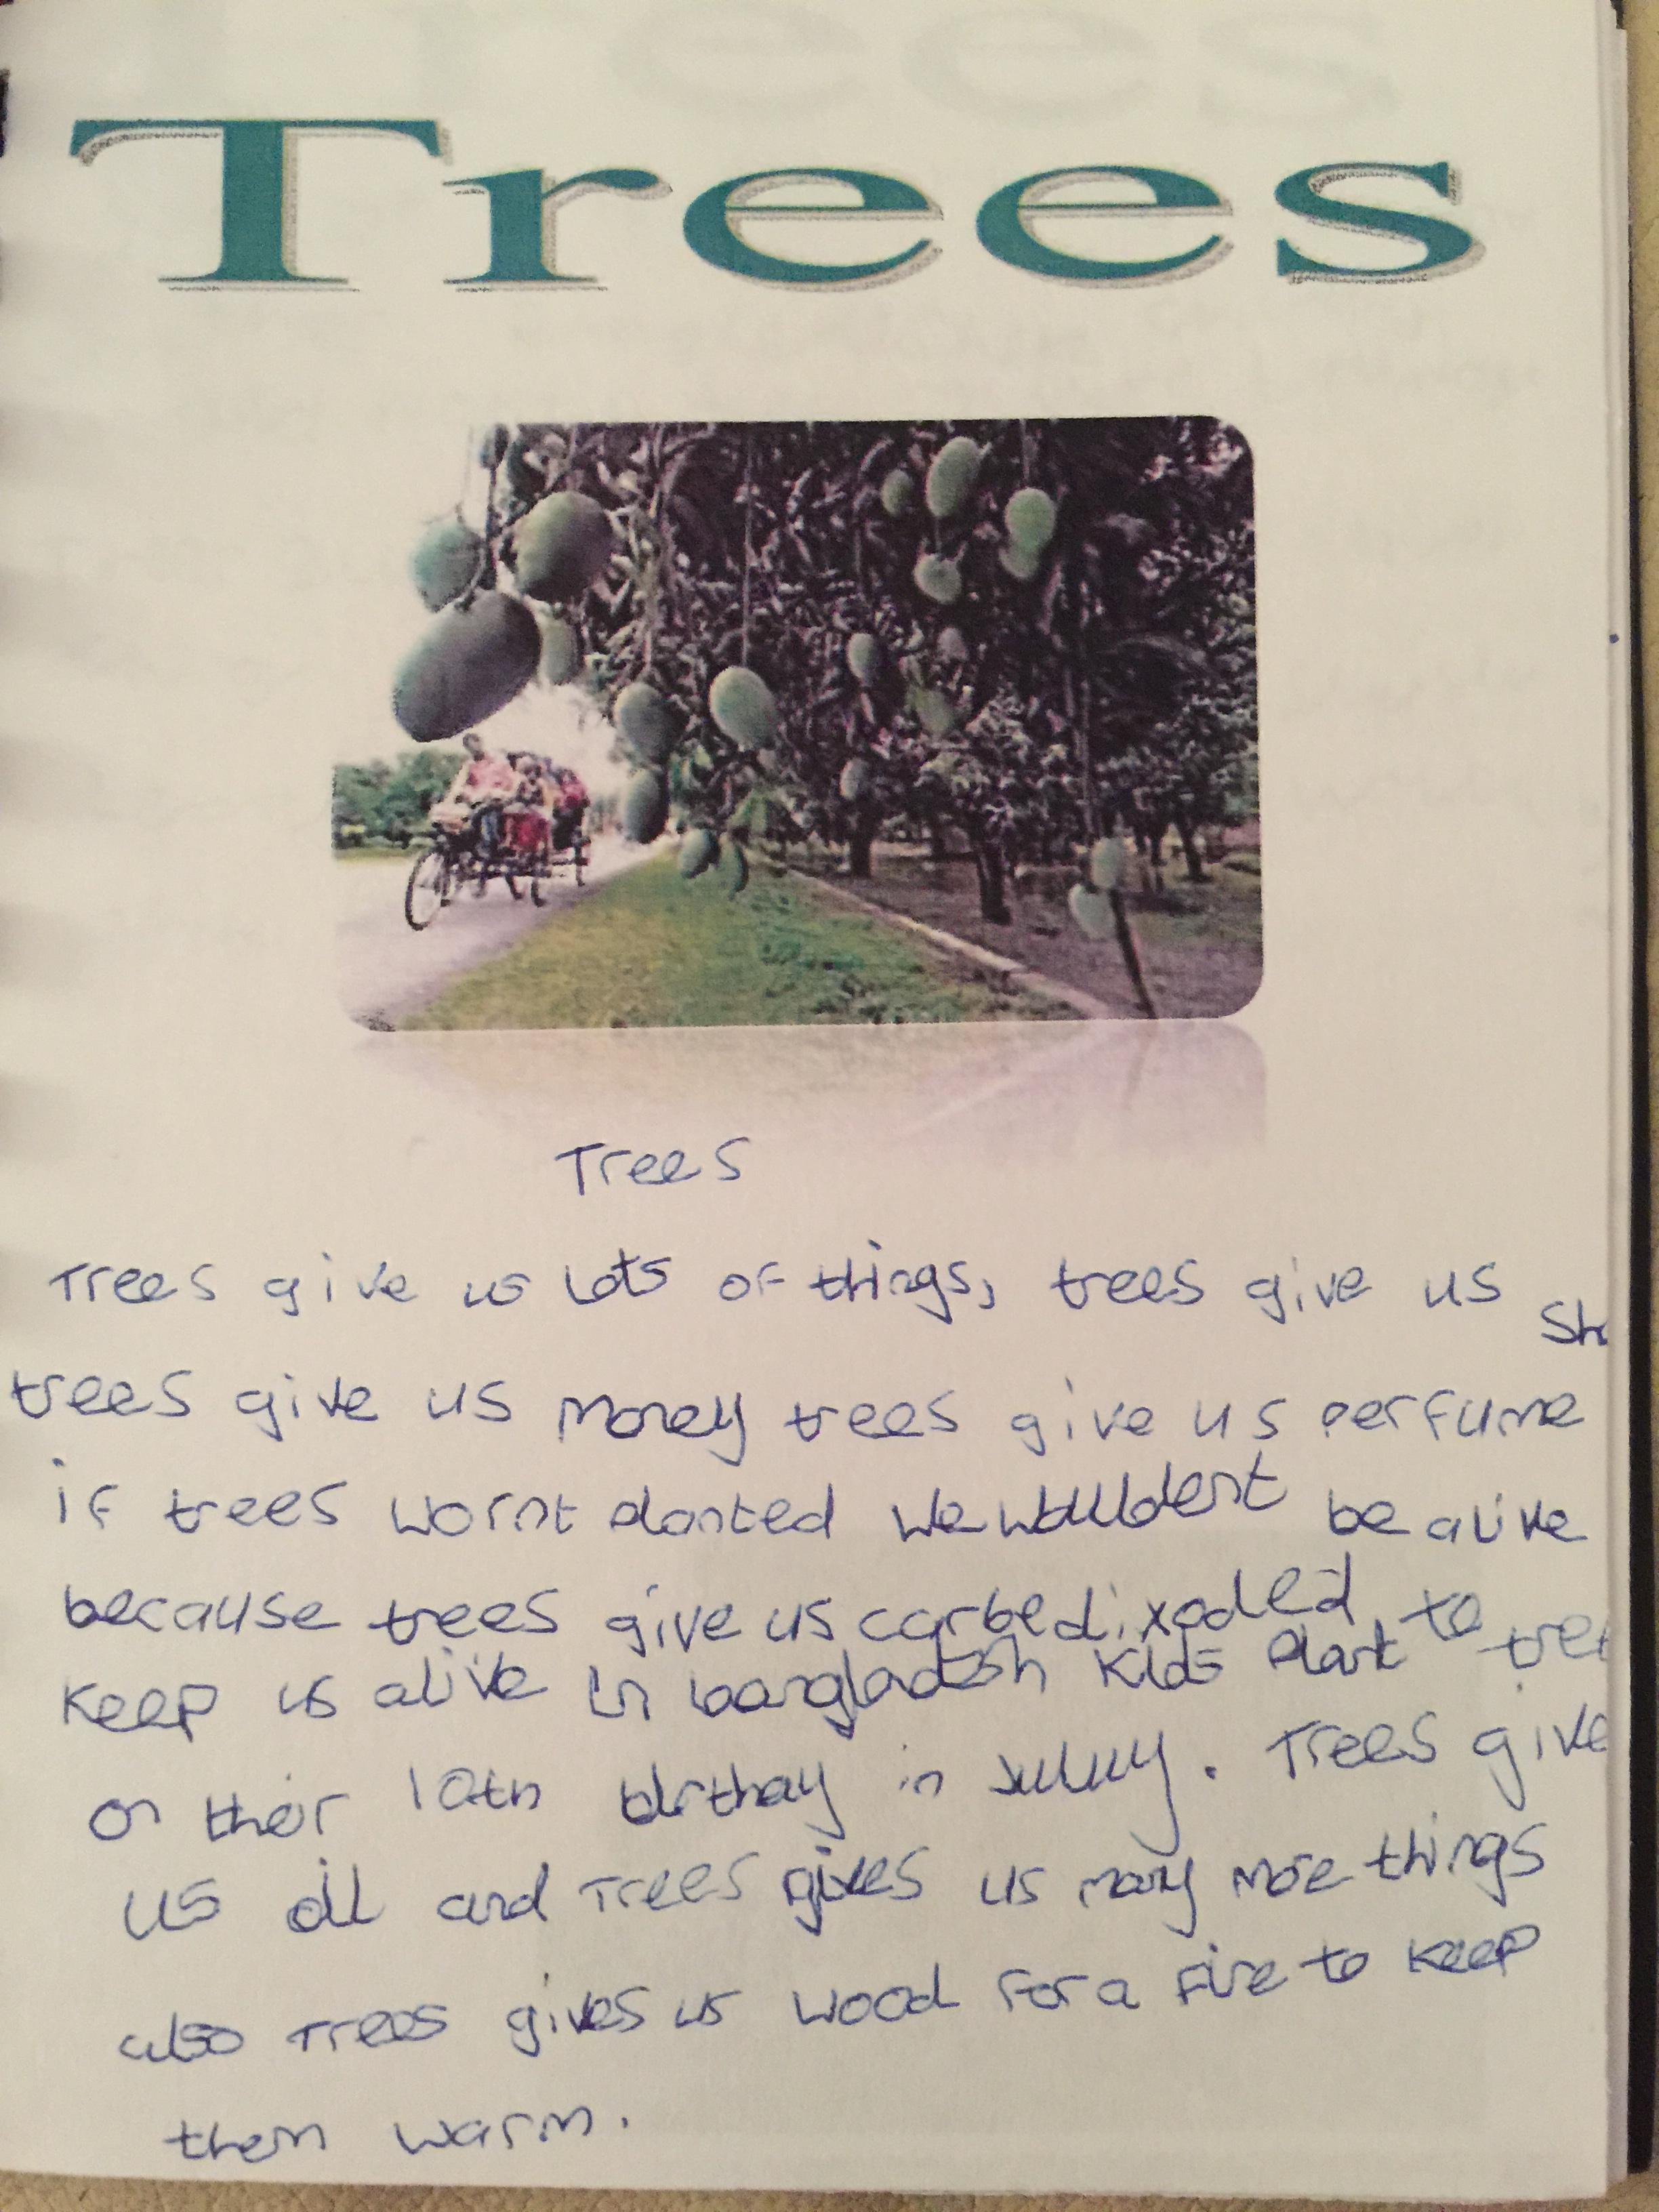 Trees
Trees
Trees give us lots of things, trees give us
trees give us money trees give us perfume
if trees wornt planted we wouldent be alive
because trees give us carbedixodled to
keep us alive in bangladesh kids plant tree
on their 10th birthay in july. Trees give
us oil and trees gives us many more things
also trees gives us wood for a fire to keep
them warm.